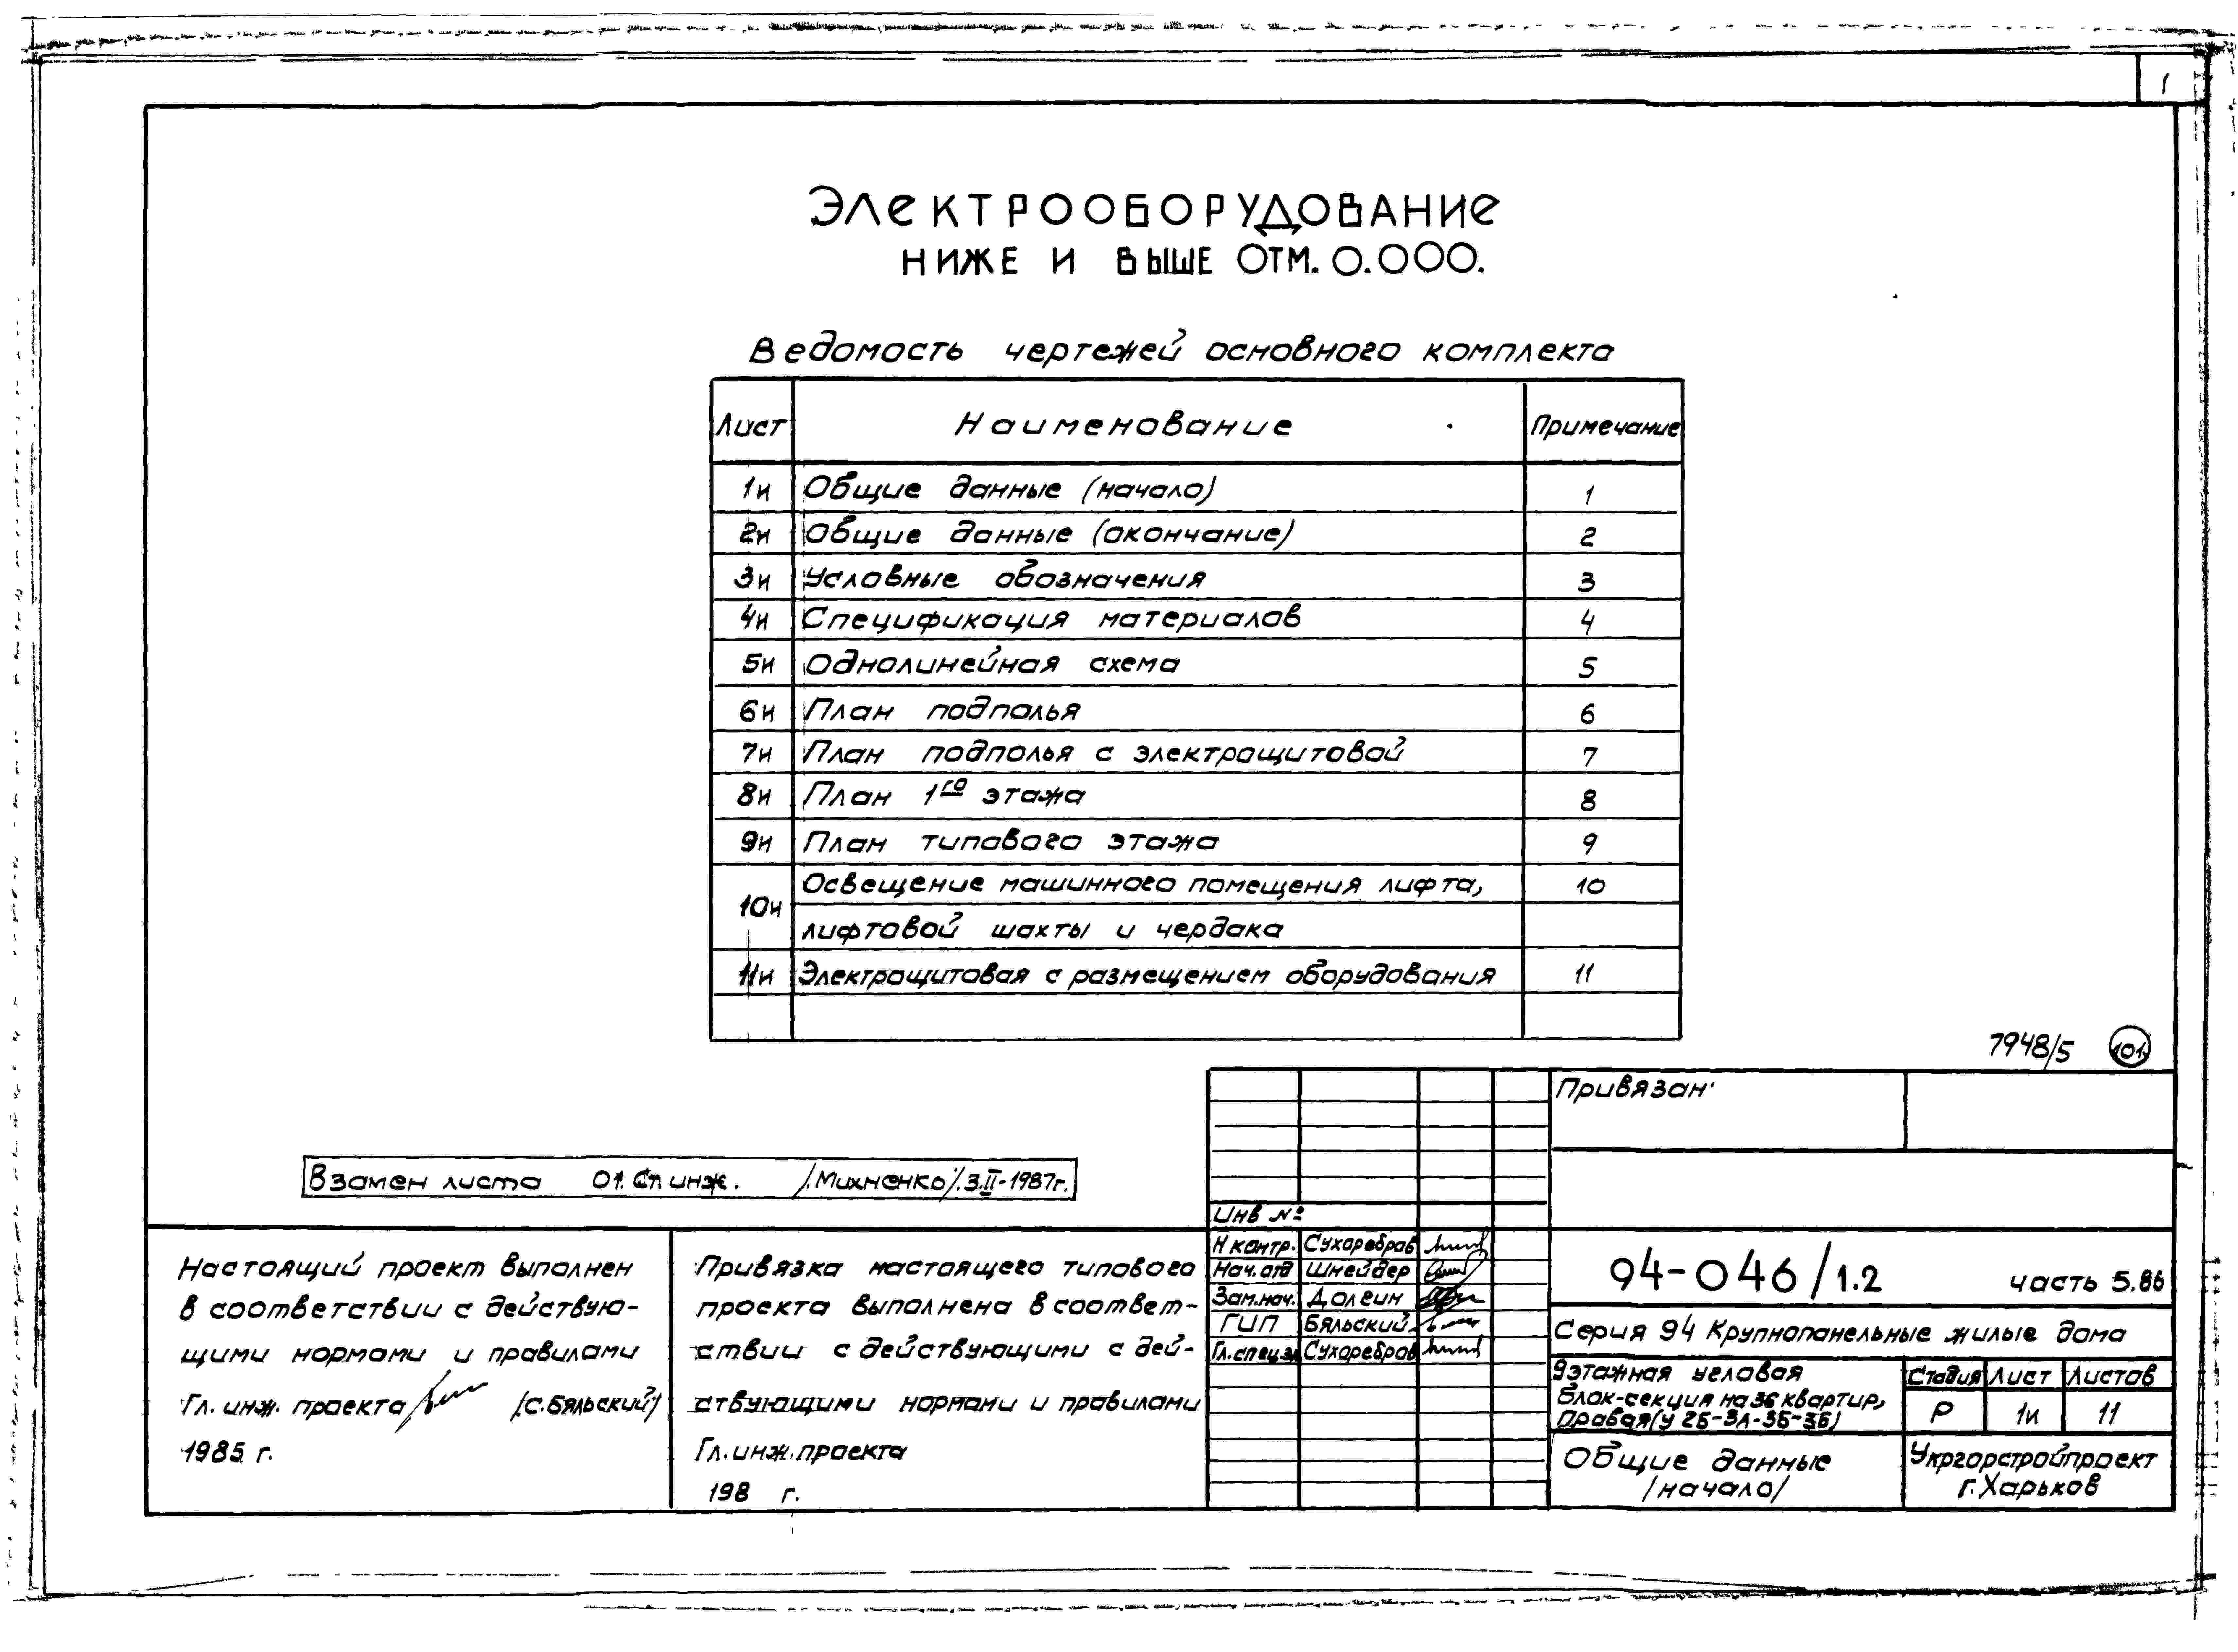 1
ЭЛЕКТРООБОРУДОВАНИЕ
НИЖЕ И ВЫШЕ ОТМ. 0.000.
Ведомость чертежей основного комплекта
Лист Наименование Примечание
1и Общие данные (начало) 1
2и Общие данные (окончание) 2
3и Условные обозначения 3
4и Спецификация материалов 4
5и Однолинейная схема 5
6и План подполья 6
7и План подполья с электрощитовой 7
8и План 1го этажа 8
9и План типового этажа 9
10и Освещение машинного помещения лифта, 10
лифтовой шахты и чердака
11и Электрощитовая с размещением оборудования 11
7948/5 101
Привязан:
Взамен листа 01. Ст. инж. /Михненко/. 3.II-1987г.
Инв №
Настоящий проект выполнен
в соответствии с действую-
щими нормами и правилами
Гл. инж. проекта /С. Бяльский/
1985 г.
Привязка настоящего типового
проекта выполнена в соответ-
ствии с действующими с дей-
ствующими нормами и правилами
Гл. инж. проекта
198 г.
Н контр. Сухоребров
Нач. отд Шнейдер
Зам. нач. Долгин
ГИП Бяльский
Гл. спец. эл Сухоребров
94-046/1.2 часть 5.86
Серия 94 Крупнопанельные жилые дома
9этажная угловая
блок-секция на 36 квартир,
правая (У 2Б-3А-3Б-3Б)
Стадия Лист Листов
Р 1и 11
Общие данные
/начало/
Укргорстройпроект
г. Харьков